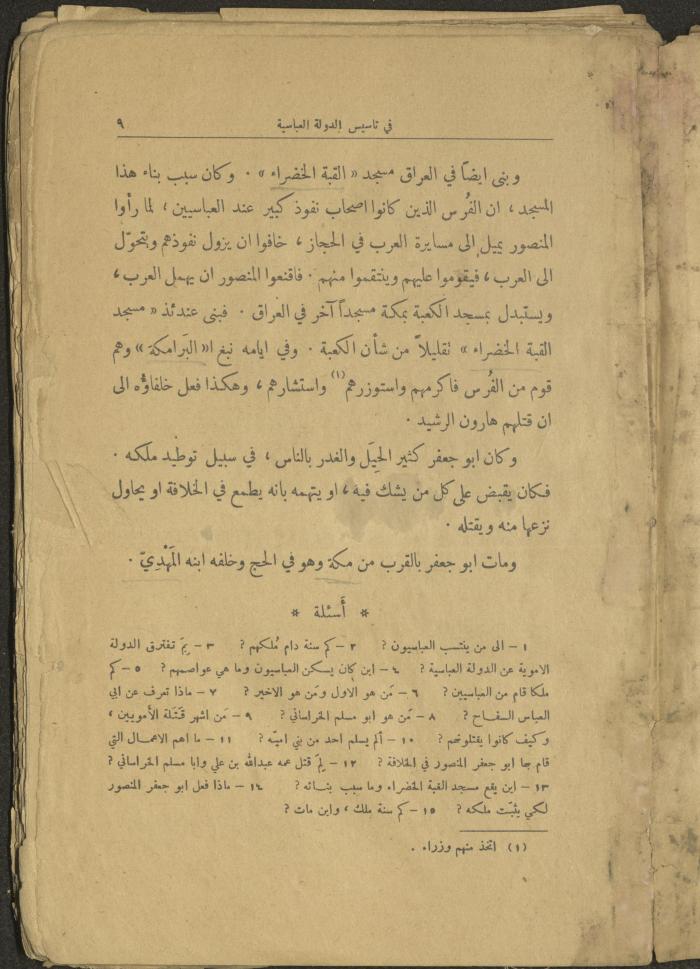 في تاسيس الدولة العباسية ٩
وبنى ايضاً في العراق مسجد « القبة الخضراء » . وكان سبب بناء هذا
المسجد ، ان الفُرس الذين كانوا اصحاب نفوذ كبير عند العباسيين ، لما رأوا
المنصور يميل الى مسايرة العرب في الحجاز ، خافوا ان يزول نفوذهم ويتحوّل
الى العرب ، فيقوموا عليهم وينتقموا منهم . فاقنعوا المنصور ان يهمل العرب ،
ويستبدل بمسجد الكعبة بمكة مسجداً آخر في العراق . فبنى عندئذ « مسجد
القبة الخضراء » تقليلاً من شأن الكعبة . وفي ايامه نبغ ا« البَرامكة » وهم
قوم من الفُرس فاكرمهم واستوزرهم(١) واستشارهم ، وهكذا فعل خلفاؤه الى
ان قتلهم هارون الرشيد .
وكان ابو جعفر كثير الحِيَل والغدر بالناس ، في سبيل توطيد ملكه .
فكان يقبض على كل من يشك فيه ، او يتهمه بانه يطمع في الخلافة او يحاول
نزعها منه ويقتله .
ومات ابو جعفر بالقرب من مكة وهو في الحج وخلفه ابنه المَهْدِيّ .
* أَسئلة *
١ – الى من ينتسب العباسيون ? ٢ – كم سنة دام مُلكهم ? ٣ – بِمَ تفترق الدولة
الاموية عن الدولة العباسية ? ٤ – اين كان يسكن العباسيون وما هي عواصمهم ? ٥ – كم
ملكا قام من العباسيين ? ٦ – مَن هو الاول ومَن هو الاخير ? ٧ – ماذا تعرف عن ابي
العباس السفاح ? ٨ – مَن هو ابو مسلم الخراساني ? ٩ – مَن اشهر قَتَلة الأمويين ،
وكيف كانوا يقتلونهم ? ١٠ – ألم يسلم احد من بني اميّة ? ١١ – ما اهم الاعمال التي
قام بها ابو جعفر المنصور في الخلافة ? ١٢ – لِمَ قتل عمه عبدالله بن علي وابا مسلم الخراساني ?
١٣ – اين يقع مسجد القبة الخضراء وما سبب بنائه ? ١٤ – ماذا فعل ابو جعفر المنصور
لكي يثبّت ملكه ? ١٥ – كم سنة ملك ، واين مات ?
(١) اتخذ منهم وزراء .